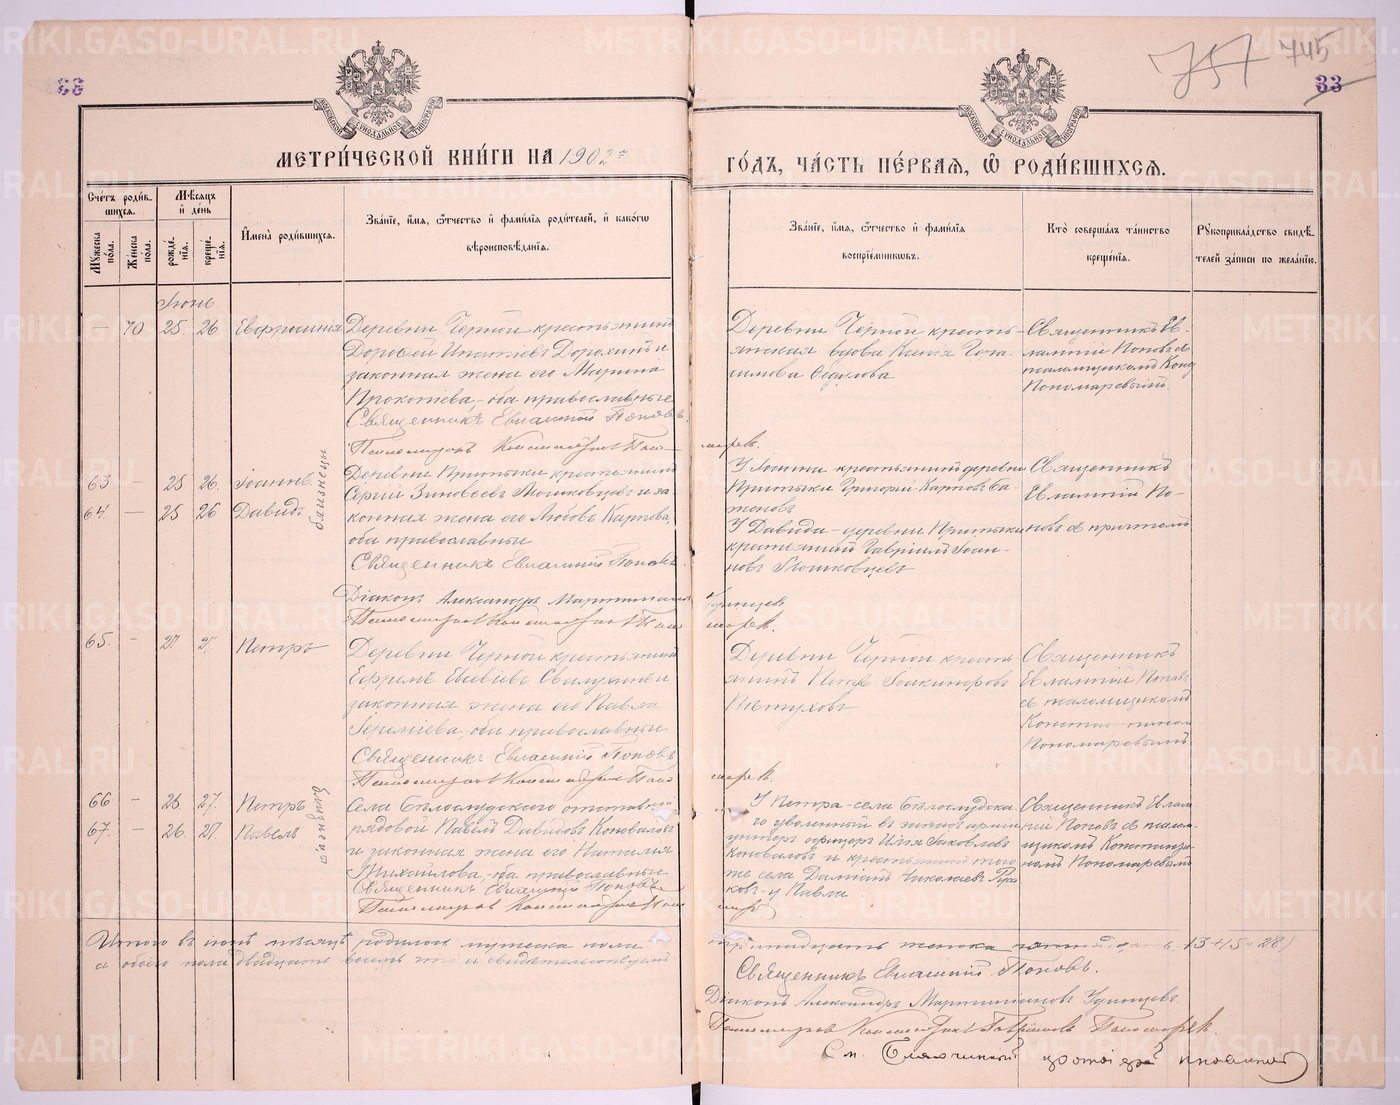 METRIKI.GASO-URAL.RU
33
757 745
33
МЕТРИ́ЧЕСКОЙ КНИ́ГИ НА 1902й
ГО́ДЪ, ЧА́СТЬ ПЕ́РВАЯ, Ѽ РОДИ́ВШИХСЯ.
Сче́тъ роди́вшихся.
Мꙋжеска пола.
Же́нска пола.
Мѣ́сяцъ и҆ де́нь
рожде́нїѧ.
креще́нїѧ.
И҆мена̀ роди́вшихсѧ.
Зва́нїе, и҆́мѧ, ѻ҆́тчество и҆ фами́лїѧ роди́телей, и҆ како́гѡ
вѣроисповѣ́данїѧ.
Зва́нїе, и҆́мѧ, ѻ҆́тчество и҆ фами́лїѧ
воспрїе́мникѡвъ.
Кто̀ соверша́лъ та́инство
креще́нїѧ.
Рꙋкоприкла́дство свидѣ́телей за́писи по жела́нїю.
Іюнь.
— 70 25 26 Евфросинія
Деревни Черной крестьянинъ
Дорофей Ипатіевъ Дорохинъ и
законная жена его Марина
Прокопіева, оба православные
Священникъ Евлампій Поповъ.
Псаломщикъ Константинъ Пономарек.
Деревни Черной кресть-
янская вдова Ксенія Гера-
симова Федулова
Священникъ Ев-
лампій Поповъ съ
псаломщикомъ Конс
Пономаревымъ.
63 — 25 26. Іоаннъ
64. — 25 26 Давидъ
близнецы
Деревни Притыки крестьянинъ
Сергій Зиновьевъ Мошковцевъ и за-
конная жена его Любовь Карпова,
оба православные
Священникъ Евлампій Поповъ.
Діаконъ Александръ Мартиніановъ Удинцевъ
Псаломщикъ Константинъ Пономарек.
У Іоанна - крестьянинъ деревни
Притыки Григорій Карповъ Ба-
женовъ
У Давида - деревни Притыки
крестьянинъ Гавріилъ Іоан-
новъ Мошковцевъ
Священникъ
Евлампій По-
повъ съ причтомъ
65. — 27 27. Петръ
Деревни Черной крестьянинъ
Ефремъ
законная жена его Павла
Іереміева, оба православные
Священникъ Евлампій Поповъ
Псаломщикъ Константинъ Пономарек.
Деревни Черной кресть
янинъ Петръ Іоакинфовъ
Пѣтуховъ
Священникъ
Евлампій Поповъ
съ псаломщикомъ
Константиномъ
Пономаревымъ
66 — 26. 27. Петръ
67. — 26. 27. Павелъ
близнецы
Села Бѣлослудскаго отставной
рядовой Павелъ Давидовъ Коноваловъ
и законная жена его Наталія
Михайлова, оба православные
Священникъ Евлампій Поповъ
Псаломщикъ Константинъ Пономарек
У Петра - села Бѣлослудска-
го уволенный въ запасъ арміи
унтеръ офицеръ Илія Іаковлевъ
Коноваловъ и крестьянинъ того
же села Даміанъ Николаевъ
у Павла
Священникъ Евлам-
пій Поповъ съ псалом-
щикомъ Константи-
номъ Пономаревымъ
Итого въ іюнѣ мѣсяцѣ родилось мужеска пола тринадцать женска пятнадцать. 13+15=28)
а обоего пола двадцать восемь что и свидѣтельствуемъ
Священникъ Евлампій Поповъ.
Діаконъ Александръ Мартиніановъ Удинцевъ.
Псаломщикъ Константинъ Пономарек.
См. Благочинный